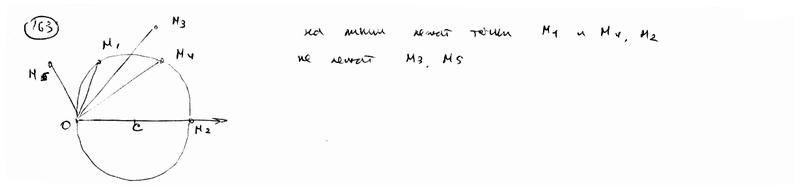 163
M₃
M₁
M₄
M₅
O
C
M₂
на линии лежат точки M₁ и M₄, M₂
не лежат M₃, M₅